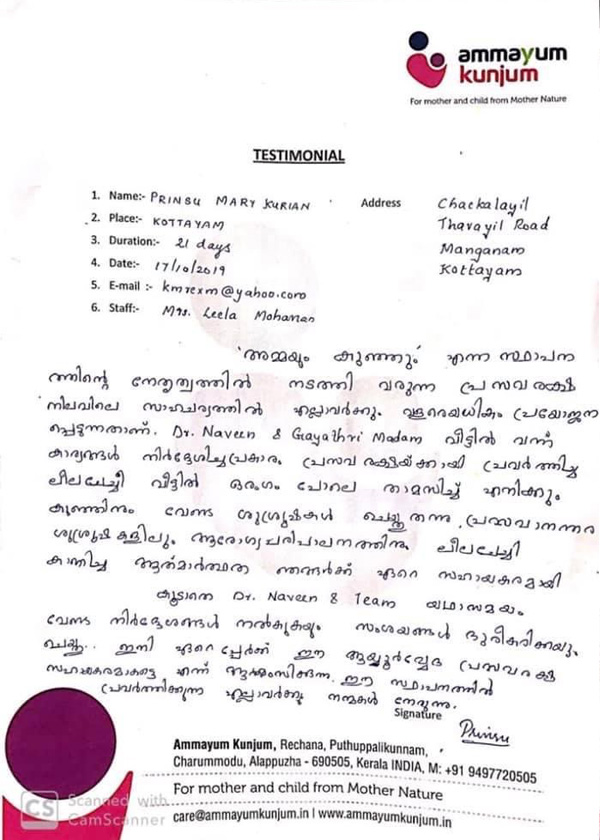 ammayum
kunjum
For mother and child from Mother Nature
TESTIMONIAL
1. Name:- PRINSU MARY KURIAN
2. Place:- KOTTAYAM
3. Duration:- 21 days
4. Date:- 17/10/2019
5. E-mail :- kmrexm@yahoo.com
6. Staff:- Mrs. Leela Mohanan
Address Chackalayil
Thavayil Road
Manganam
Kottayam
'അമ്മയും കുഞ്ഞും' എന്ന സ്ഥാപന
ത്തിന്റെ നേതൃത്വത്തിൽ നടത്തി വരുന്ന പ്രസവരക്ഷ
നിലവിലെ സാഹചര്യത്തിൽ എല്ലാവർക്കും വളരെയധികം പ്രയോജന
പ്പെടുന്നതാണ്. Dr. Naveen & Gayathri Madam വീട്ടിൽ വന്ന്
കാര്യങ്ങൾ നിർദ്ദേശിച്ച പ്രകാരം പ്രസവ രക്ഷയ്ക്കായി പ്രവർത്തിച്ച
ലീലചേച്ചി വീട്ടിൽ ഒരംഗം പോലെ താമസിച്ച് എനിക്കും
കുഞ്ഞിനും വേണ്ട ശുശ്രൂഷകൾ ചെയ്തു തന്നു. പ്രസവാനന്തര
ശുശ്രൂഷകളിലും ആരോഗ്യപരിപാലനത്തിനും ലീലചേച്ചി
കാണിച്ച ആത്മാർത്ഥത ഞങ്ങൾക്ക് ഏറെ സഹായകരമായി
കൂടാതെ Dr. Naveen & Team യഥാസമയം
വേണ്ട നിർദ്ദേശങ്ങൾ നൽകുകയും സംശയങ്ങൾ ദൂരീകരിക്കയും
ചെയ്തു.. ഇനി ഏറെപ്പേർക്ക് ഈ ആയുർവ്വേദ പ്രസവരക്ഷ
സഹായകരമാകട്ടെ എന്ന് ആശംസിക്കുന്നു. ഈ സ്ഥാപനത്തിൽ
പ്രവർത്തിക്കുന്ന എല്ലാവർക്കും നന്മകൾ നേരുന്നു.
Signature
Prinsu
Ammayum Kunjum, Rechana, Puthuppalikunnam,
Charummodu, Alappuzha - 690505, Kerala INDIA, M: +91 9497720505
For mother and child from Mother Nature
care@ammayumkunjum.in | www.ammayumkunjum.in
CS Scanned with
CamScanner